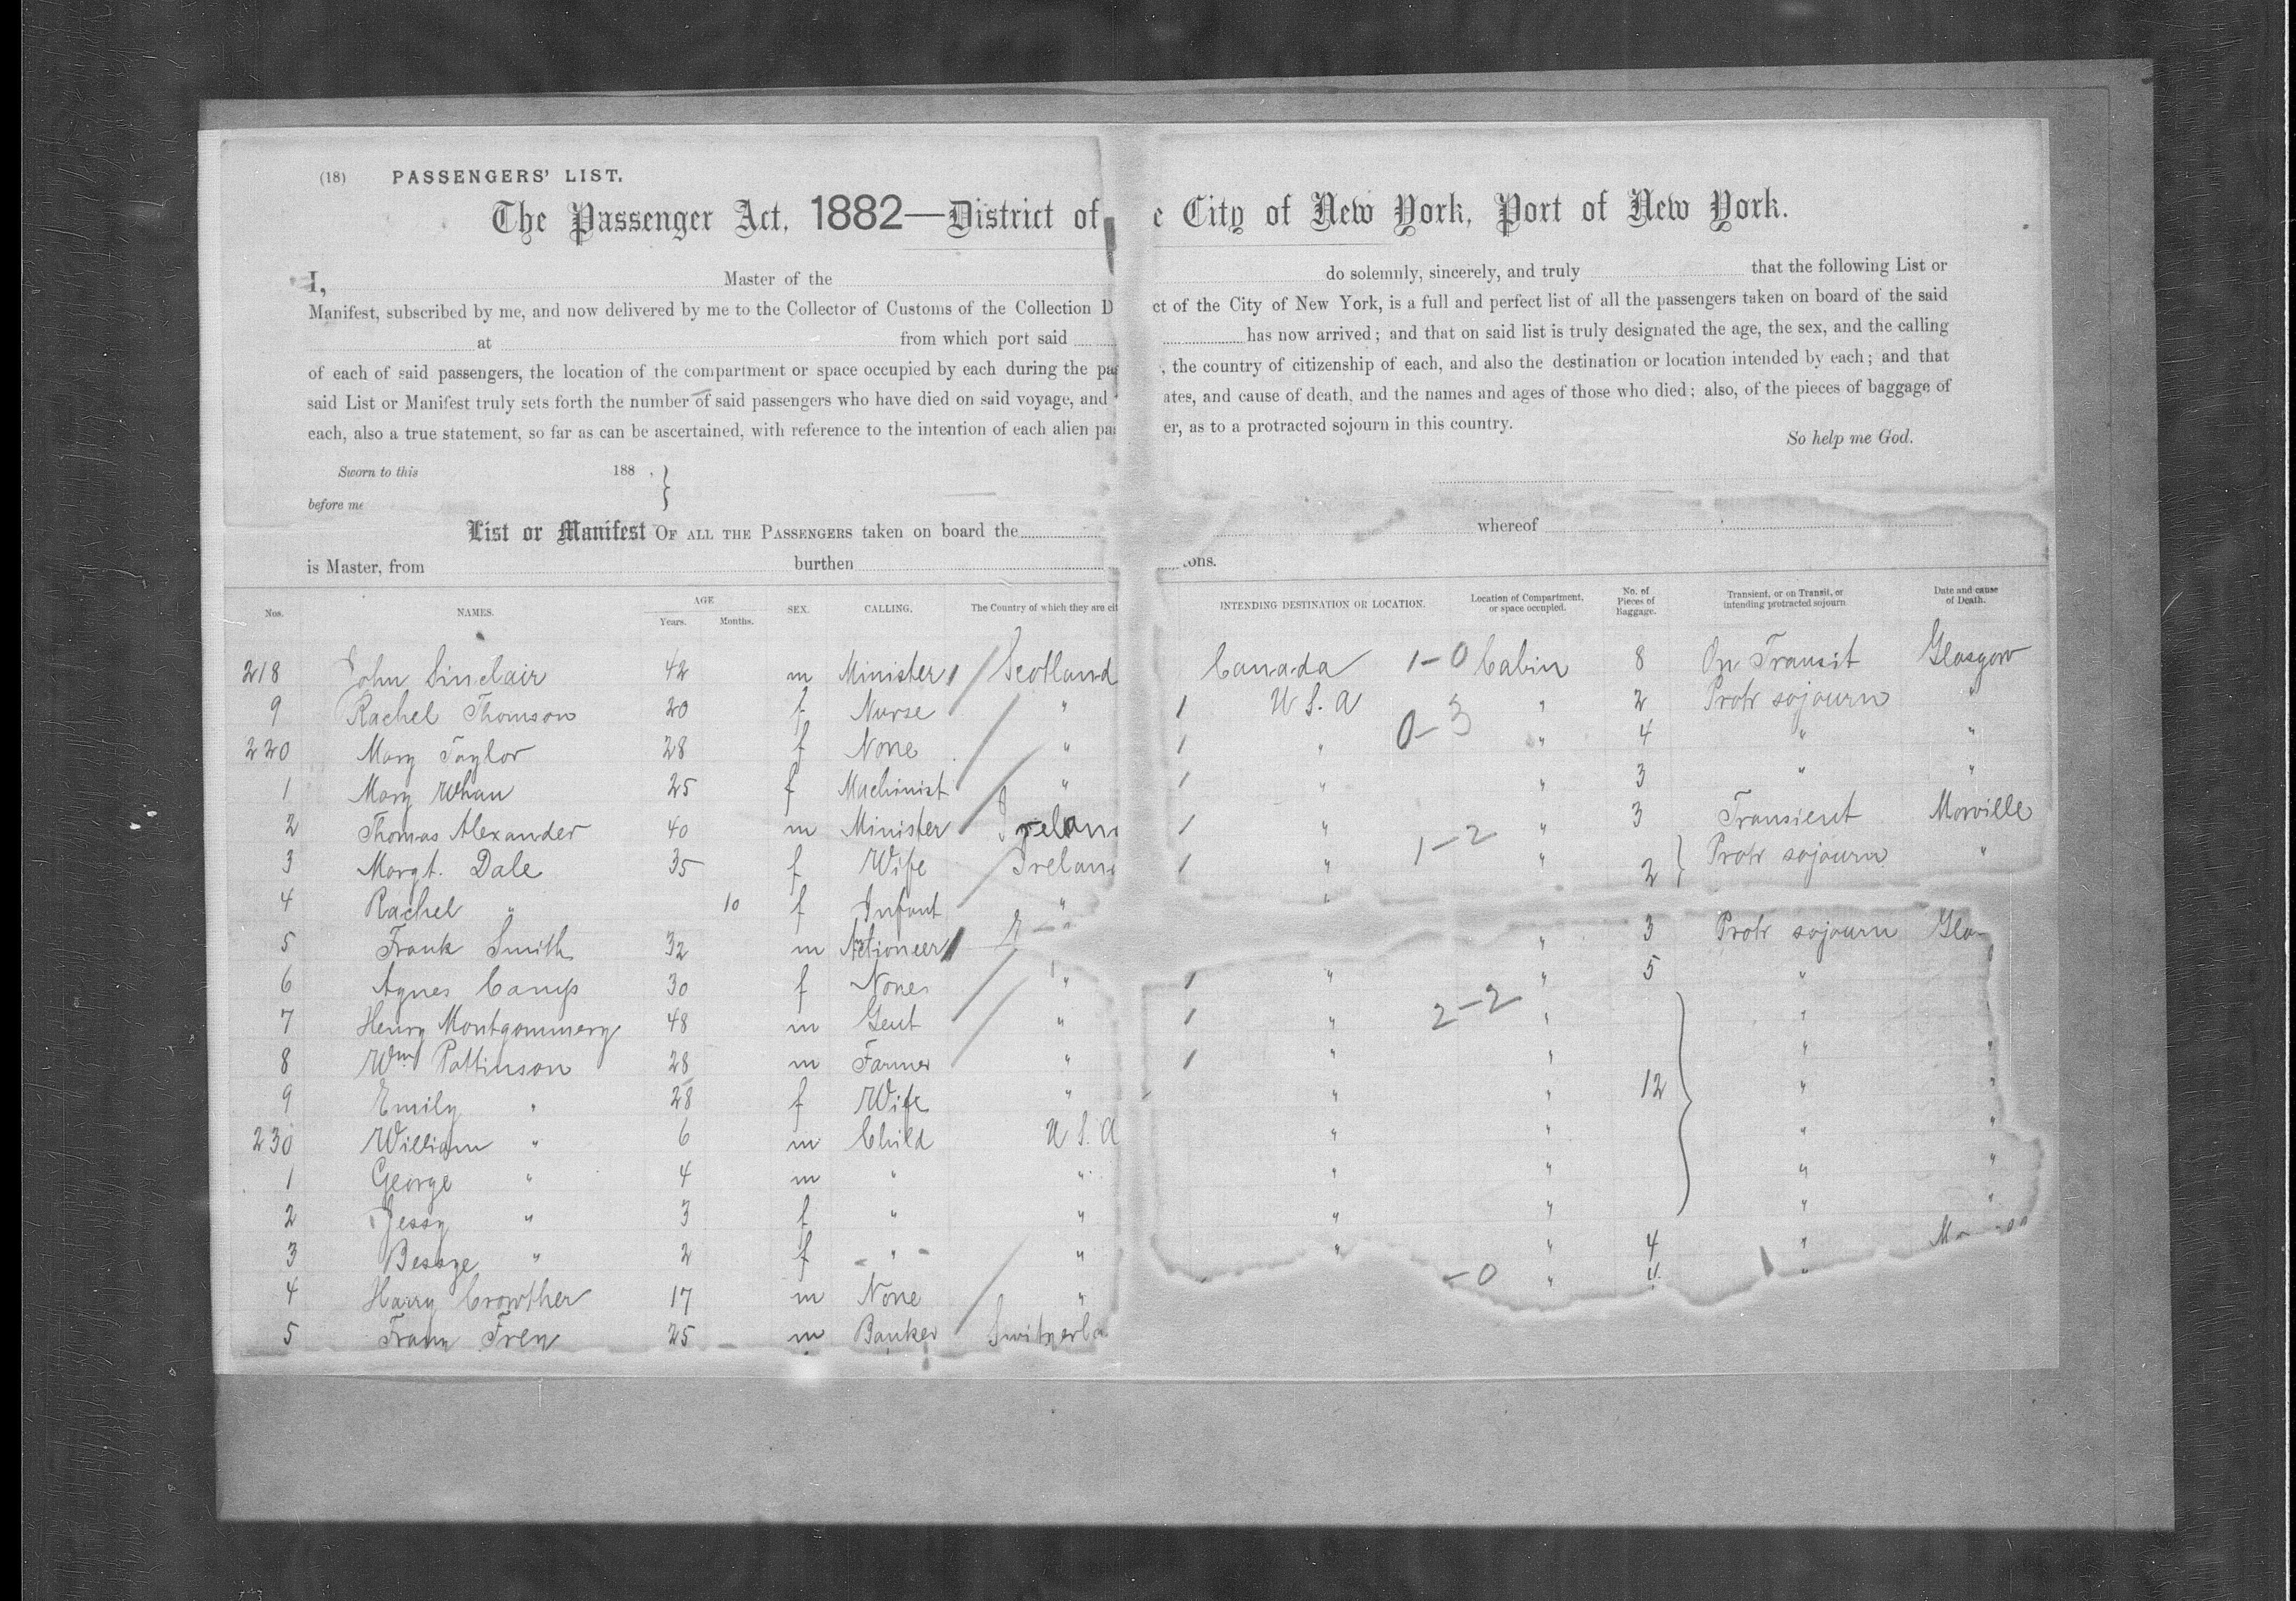 (18) PASSENGERS' LIST.
The Passenger Act, 1882—District of e City of New York, Port of New York.
I, Master of the do solemnly, sincerely, and truly that the following List or
Manifest, subscribed by me, and now delivered by me to the Collector of Customs of the Collection D ct of the City of New York, is a full and perfect list of all the passengers taken on board of the said
at from which port said has now arrived; and that on said list is truly designated the age, the sex, and the calling
of each of said passengers, the location of the compartment or space occupied by each during the pas , the country of citizenship of each, and also the destination or location intended by each; and that
said List or Manifest truly sets forth the number of said passengers who have died on said voyage, and ates, and cause of death, and the names and ages of those who died; also, of the pieces of baggage of
each, also a true statement, so far as can be ascertained, with reference to the intention of each alien pas er, as to a protracted sojourn in this country.
So help me God.
Sworn to this 188 .
before me
List or Manifest OF ALL THE PASSENGERS taken on board the whereof
is Master, from burthen ons.
Nos. NAMES. AGE Years. Months. SEX. CALLING. The Country of which they are cit INTENDING DESTINATION OR LOCATION. Location of Compartment, or space occupied. No. of Pieces of Baggage. Transient, or on Transit, or intending protracted sojourn Date and cause of Death.
218 John Sinclair 42 m Minister Scotland Canada 1-0 Cabin 8 On Transit Glasgow
9 Rachel Thomson 20 f Nurse " 1 U.S.A " 2 Protr sojourn "
220 Mary Taylor 28 f None " 1 " 0-3 " 4 " "
1 Mary Whan 25 f Machinist " 1 " " 3 " "
2 Thomas Alexander 40 m Minister Irelan 1 " " 3 Transient Morville
3 Margt. Dale 35 f Wife Irelan 1 " 1-2 " 2 Protr sojourn "
4 Rachel " 10 f Infant " "
5 Frank Smith 32 m Actioneer " 3 Protr sojourn Gla
6 Agnes Camp 30 f None " 1 " " 5 "
7 Henry Montgommery 48 m Gent " 1 " 2-2 " "
8 Wm Pattinson 28 m Farmer " 1 " " " "
9 Emily " 28 f Wife " " " 12 " "
230 William " 6 m Child U.S.A " " " "
1 George " 4 m " " " " " "
2 Jessy " 3 f " " " " " "
3 Bessye " 2 f " " " " 4 "
4 Harry Crowther 17 m None " -0 " "
5 Franz Frey 25 m Banker Switzerla